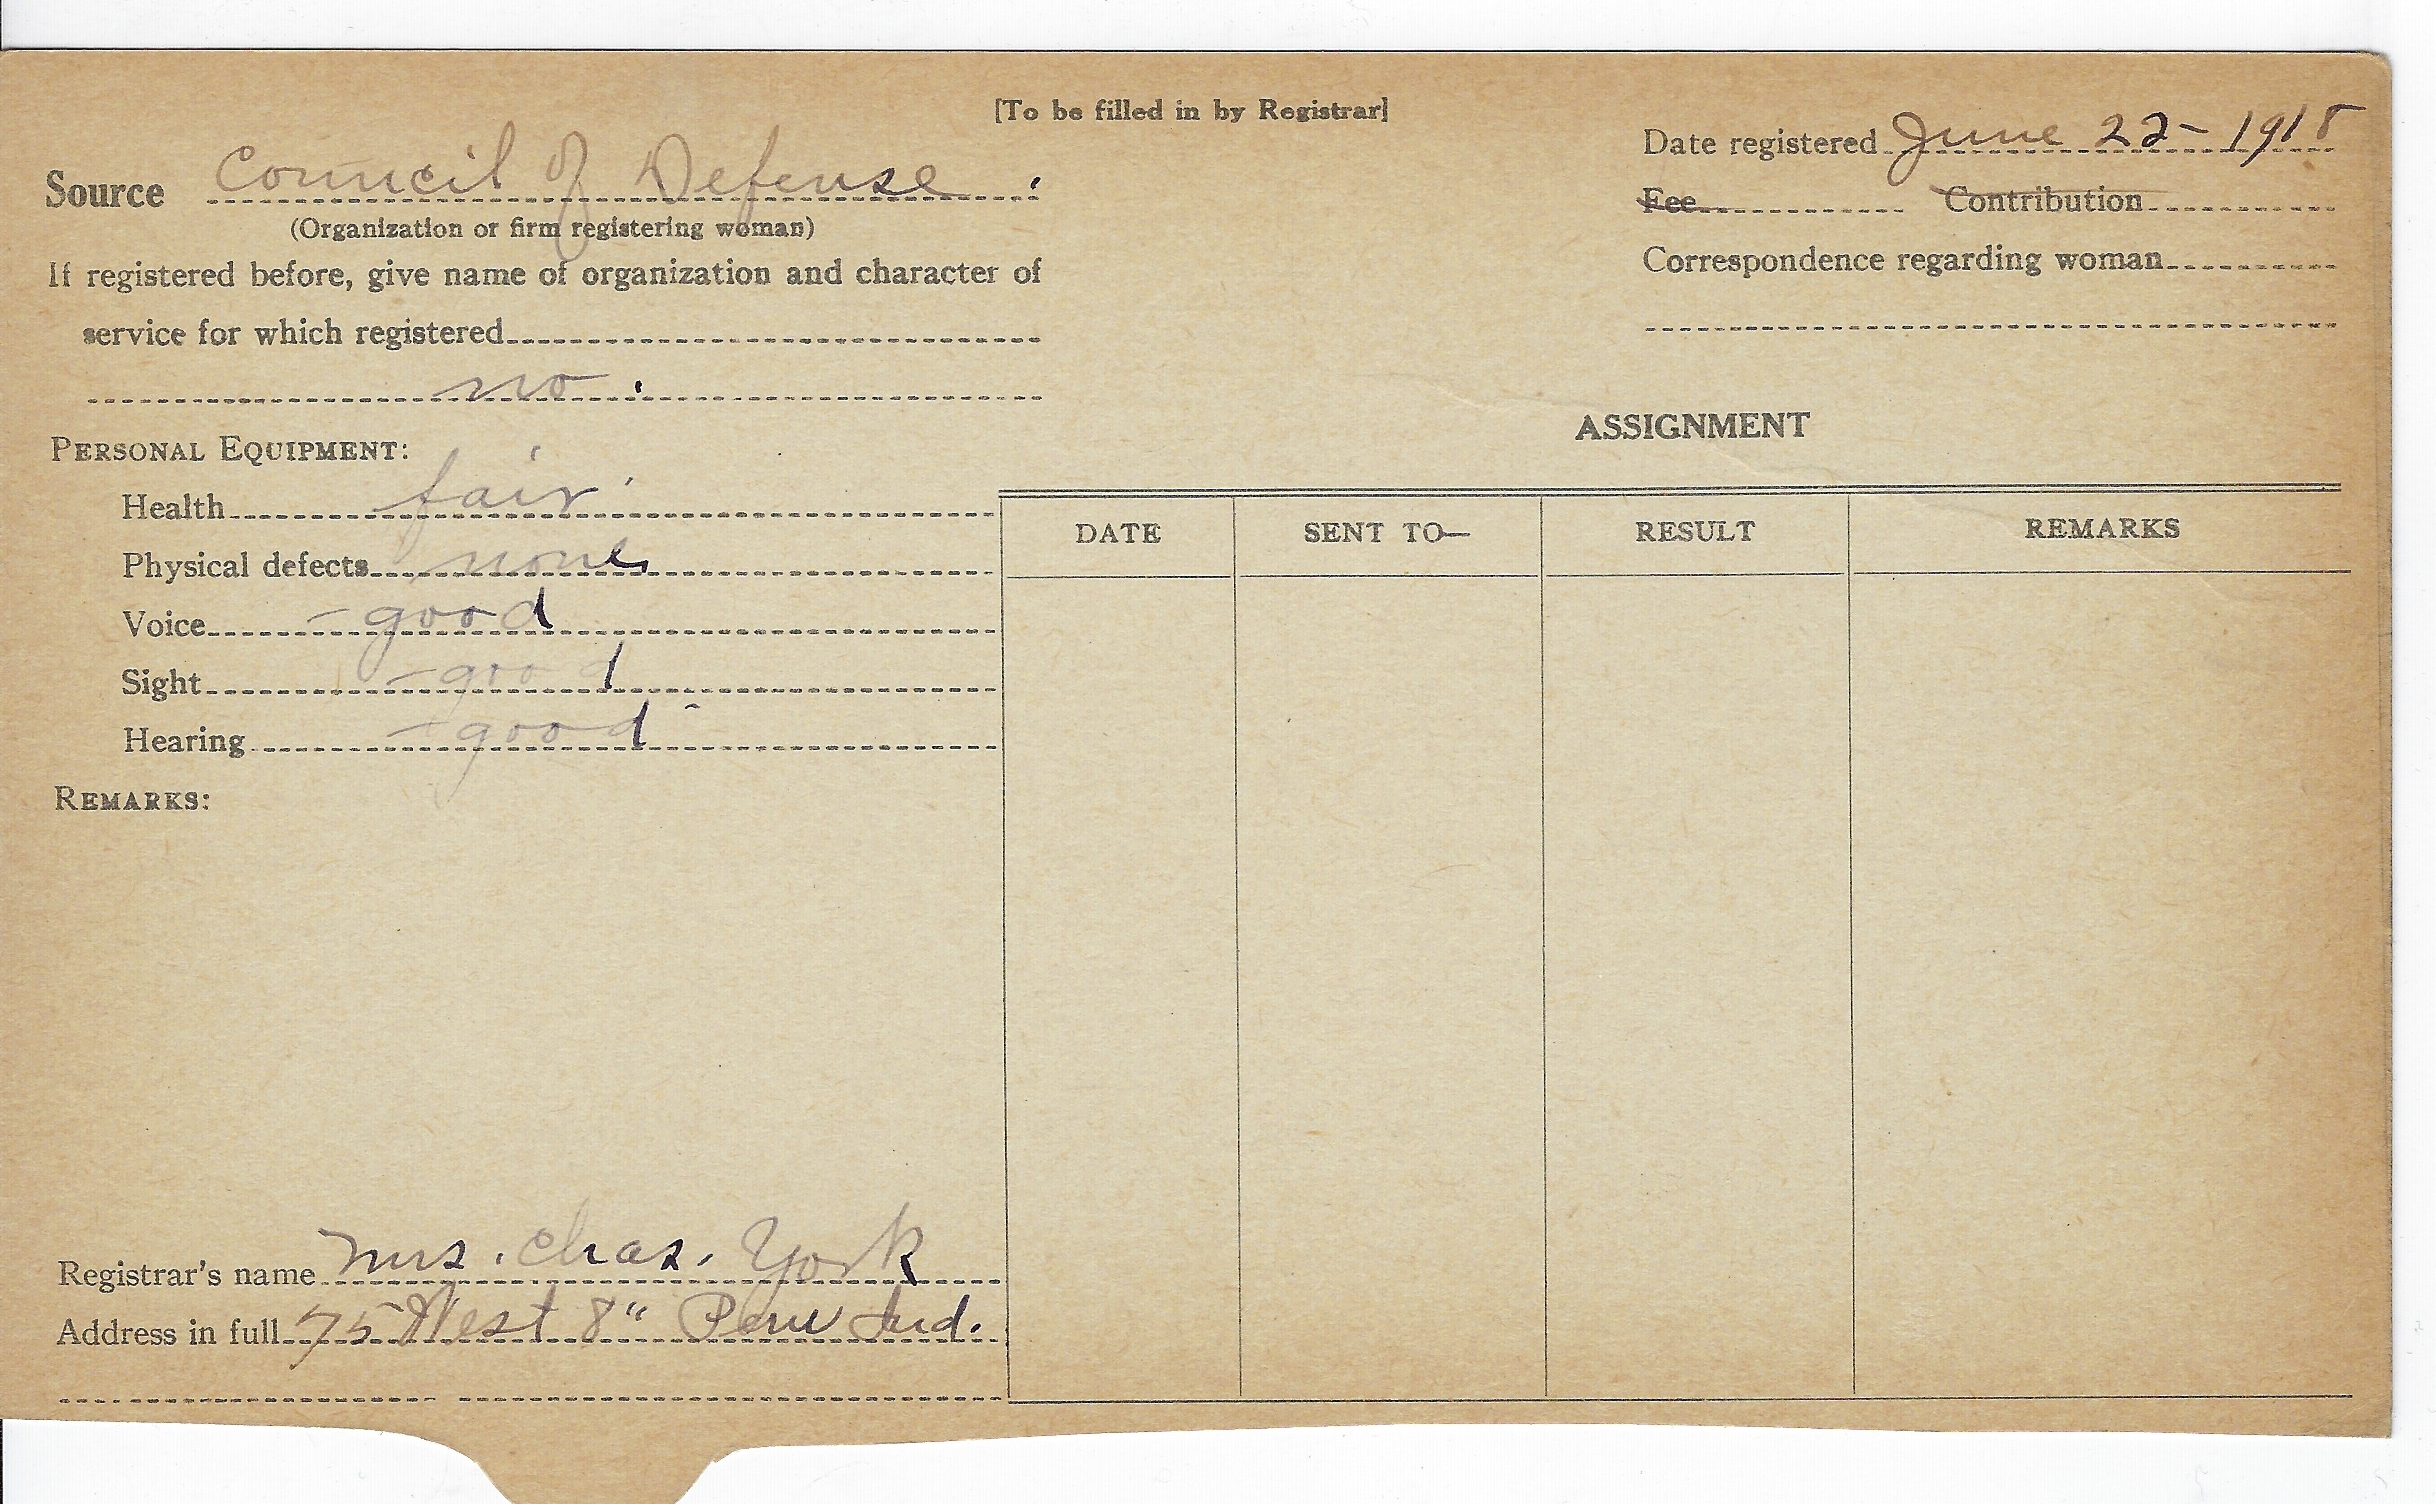 [To be filled in by Registrar]
Source Council of Defense
(Organization or firm registering woman)
If registered before, give name of organization and character of
service for which registered
no
Date registered June 22-1918
Fee Contribution
Correspondence regarding woman
PERSONAL EQUIPMENT:
Health fair
Physical defects none
Voice - good
Sight - good
Hearing - good
REMARKS:
Registrar's name Mrs. Chas. York
Address in full 75 West 8" Peru Ind.
ASSIGNMENT
DATE SENT TO— RESULT REMARKS